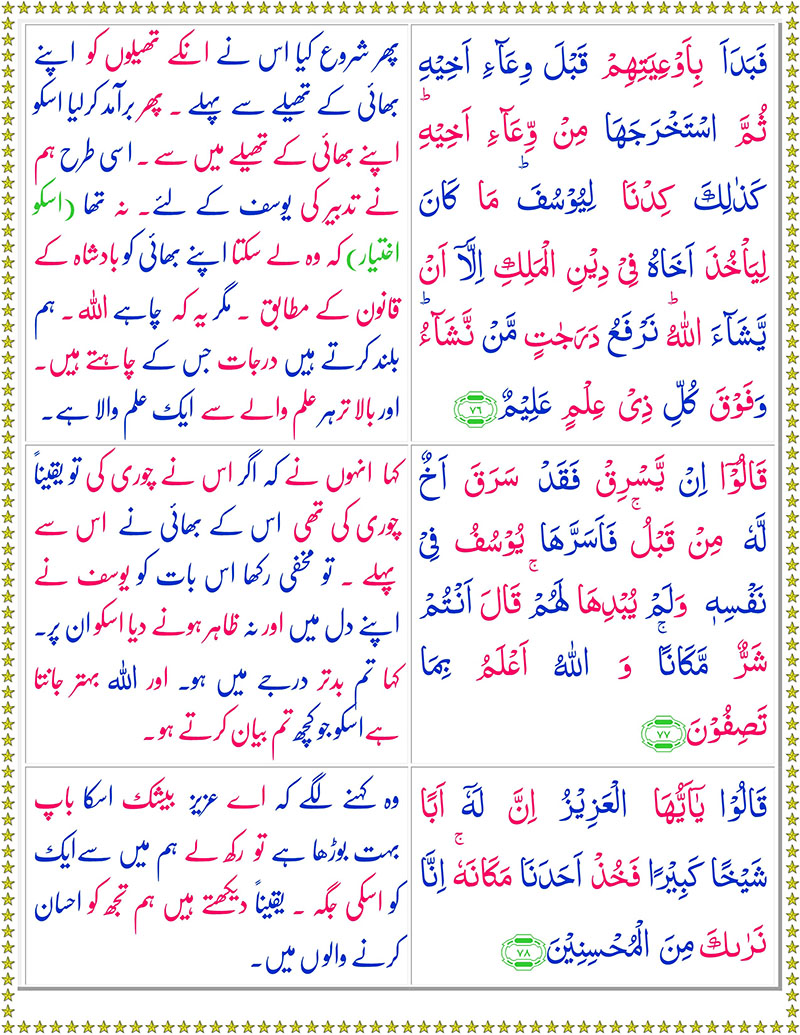 فَبَدَاَ بِاَوْعِيَتِهِمْ قَبْلَ وِعَآءِ اَخِيْهِ
ثُمَّ اسْتَخْرَجَهَا مِنْ وِّعَآءِ اَخِيْهِ ؕ
كَذٰلِكَ كِدْنَا لِيُوْسُفَ ؕ مَا كَانَ
لِيَاْخُذَ اَخَاهُ فِىْ دِيْنِ الْمَلِكِ اِلَّاۤ اَنْ
يَّشَآءَ اللّٰهُ ؕ نَرْفَعُ دَرَجٰتٍ مَّنْ نَّشَآءُ ؕ
وَفَوْقَ كُلِّ ذِىْ عِلْمٍ عَلِيْمٌ ۝۷۶
پھر شروع کیا اس نے انکے تھیلوں کو اپنے
بھائی کے تھیلے سے پہلے ۔ پھر برآمد کرلیا اسکو
اپنے بھائی کے تھیلے میں سے ۔ اسی طرح ہم
نے تدبیر کی یوسف کے لئے۔ نہ تھا (اسکو
اختیار) کہ وہ لے سکتا اپنے بھائی کو بادشاہ کے
قانون کے مطابق ۔ مگر یہ کہ چاہے اللہ ۔ ہم
بلند کرتے ہیں درجات جس کے چاہتے ہیں۔
اور بالا تر ہر علم والے سے ایک علم والا ہے۔
قَالُوْۤا اِنْ يَّسْرِقْ فَقَدْ سَرَقَ اَخٌ
لَّهٗ مِنْ قَبْلُ ۚ فَاَسَرَّهَا يُوْسُفُ فِىْ
نَفْسِهٖ وَلَمْ يُبْدِهَا لَهُمْ ۚ قَالَ اَنْتُمْ
شَرٌّ مَّكَانًا ۚ وَ اللّٰهُ اَعْلَمُ بِمَا
تَصِفُوْنَ ۝۷۷
کہا انہوں نے کہ اگر اس نے چوری کی تو یقیناً
چوری کی تھی اس کے بھائی نے اس سے
پہلے ۔ تو مخفی رکھا اس بات کو یوسف نے
اپنے دل میں اور نہ ظاہر ہونے دیا اسکو ان پر۔
کہا تم بدتر درجے میں ہو۔ اور اللہ بہتر جانتا
ہے اسکو جو کچھ تم بیان کرتے ہو۔
قَالُوْا يٰۤاَيُّهَا الْعَزِيْزُ اِنَّ لَهٗۤ اَبًا
شَيْخًا كَبِيْرًا فَخُذْ اَحَدَنَا مَكَانَهٗ ۚ اِنَّا
نَرٰٮكَ مِنَ الْمُحْسِنِيْنَ ۝۷۸
وہ کہنے لگے کہ اے عزیز بیشک اسکا باپ
بہت بوڑھا ہے تو رکھ لے ہم میں سے ایک
کو اسکی جگہ ۔ یقیناً دیکھتے ہیں ہم تجھ کو احسان
کرنے والوں میں۔